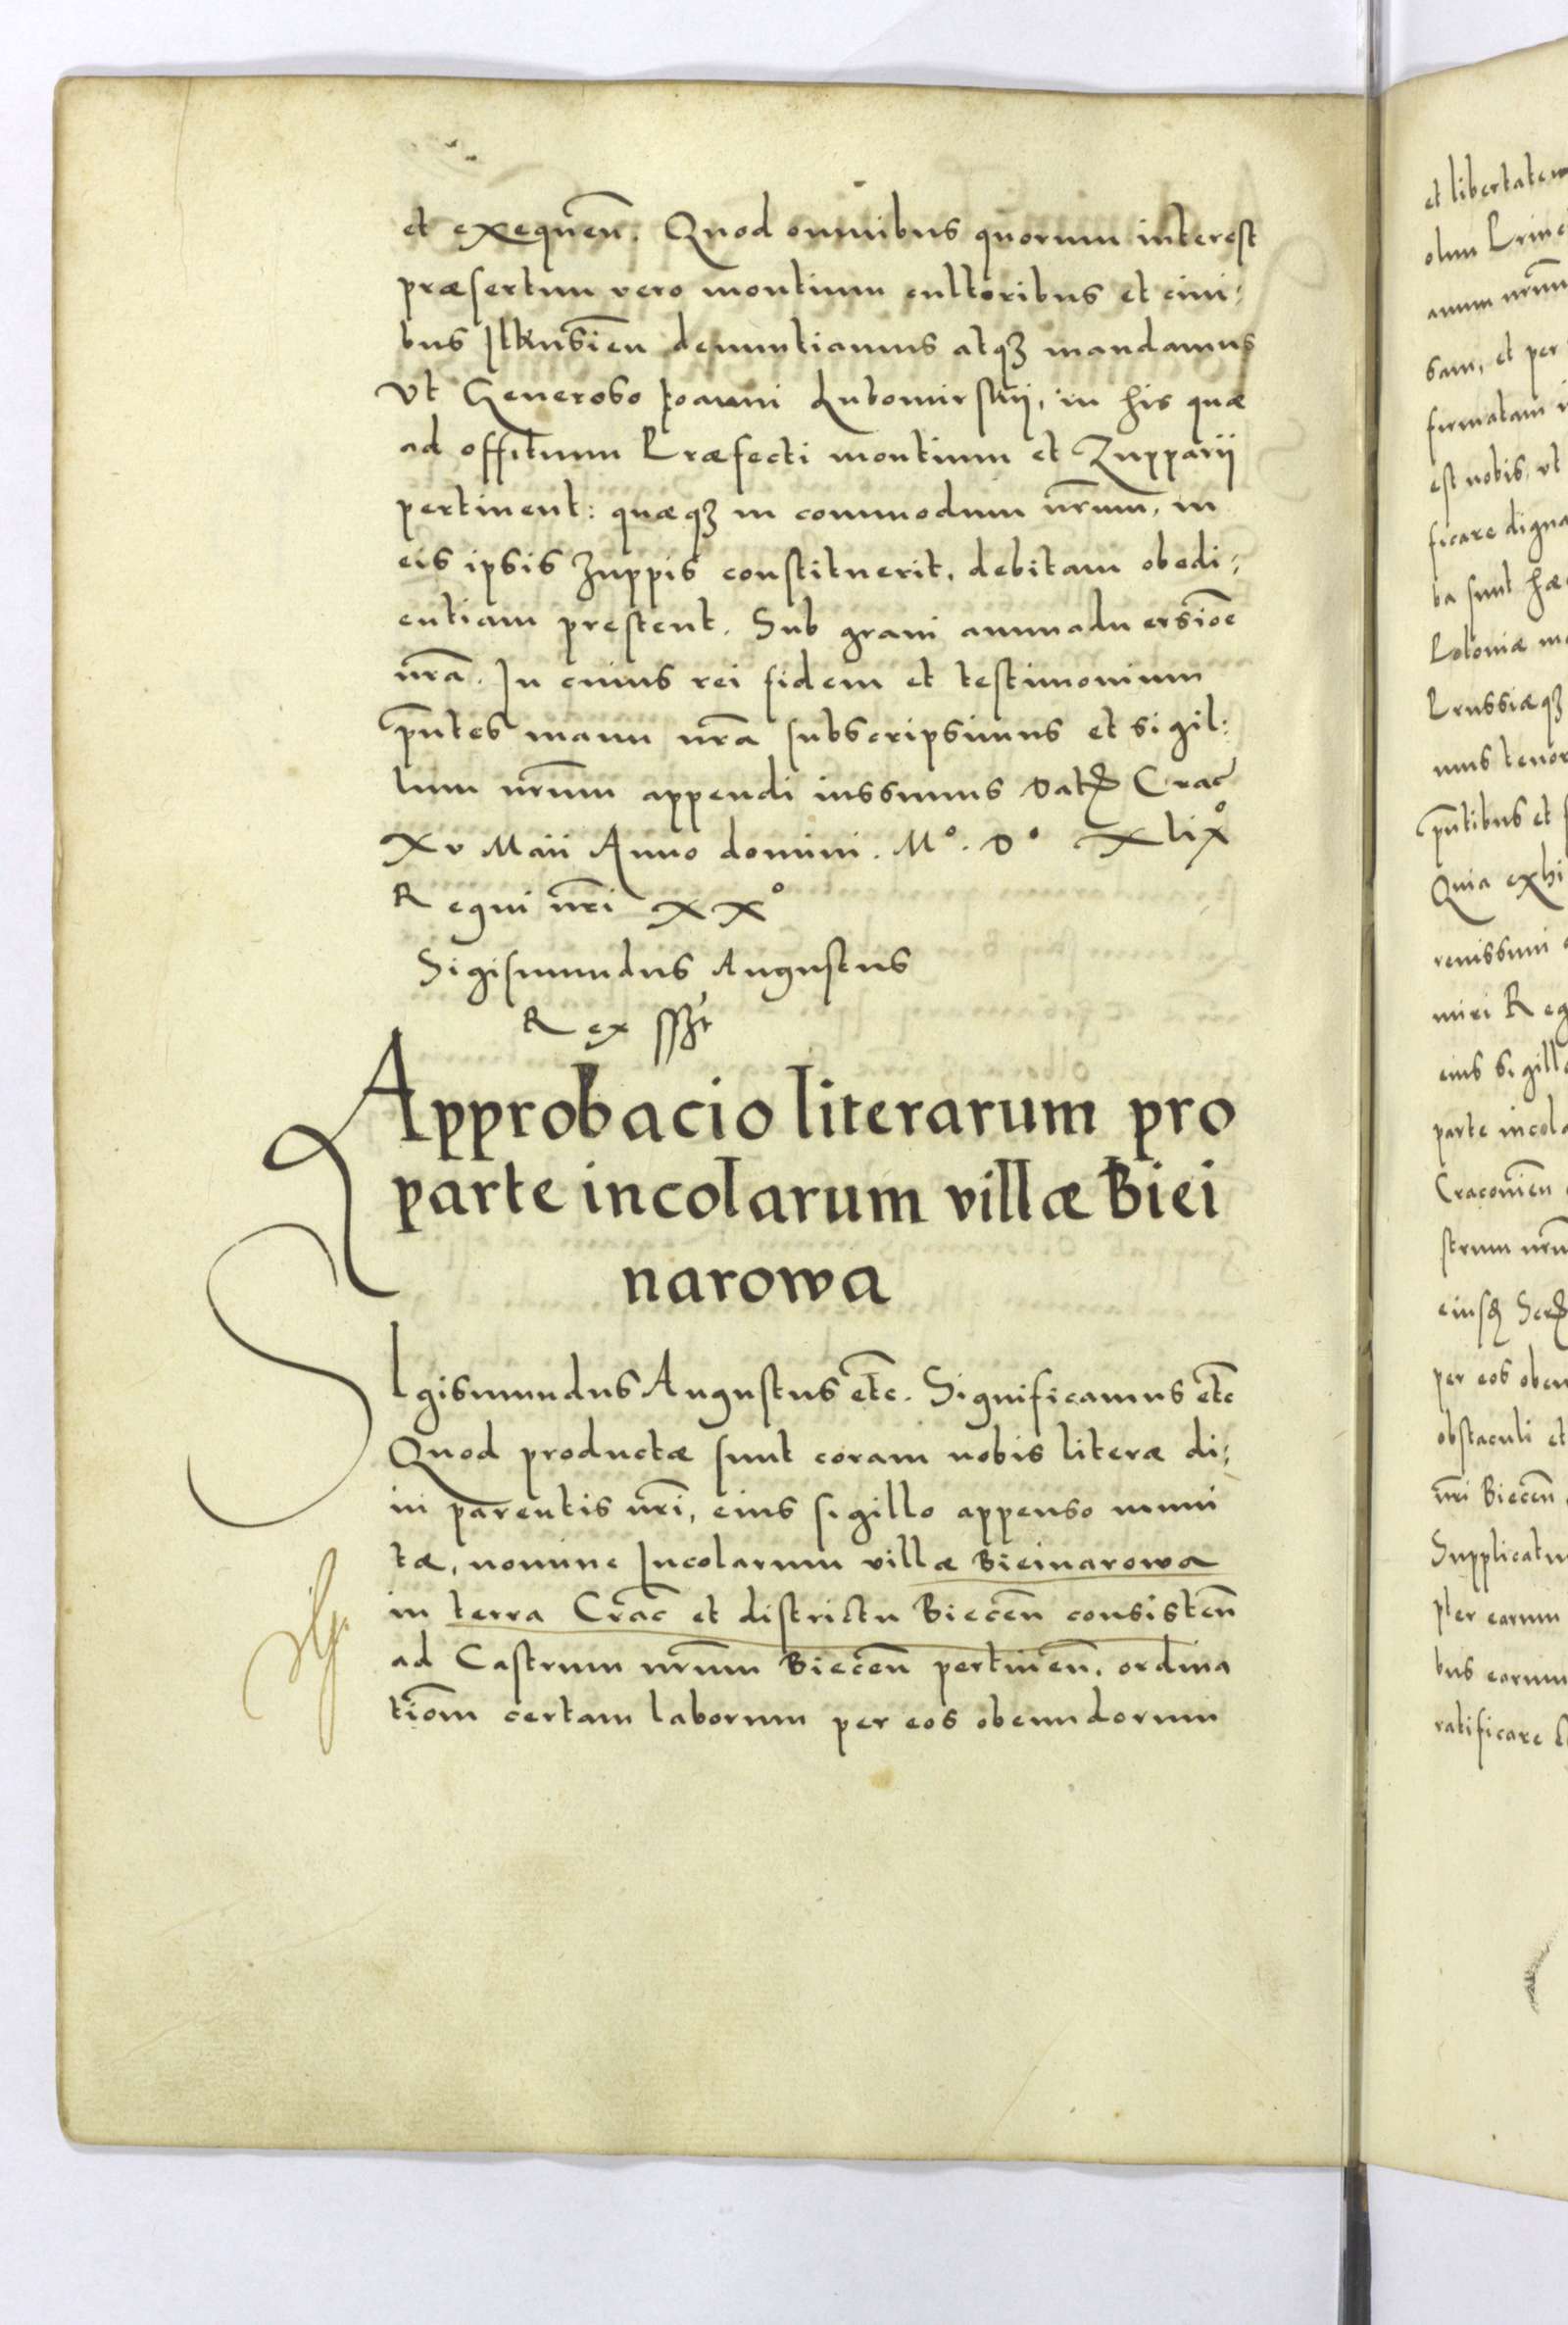 et exequen̄. Quod omnibus quorum interest
præsertim vero montium cultoribus et civi:
bus Ilkusien̄ denuntiamus atqȝ mandamus
Vt Generoso Joanni Lubomirskij, in his quæ
ad offitium Præfecti montium et Zupparij
pertinent: quæqȝ in commodum nr̄um, in
eis ipsis zuppis constituerit, debitam obedi:
entiam prestent. Sub gravi animadversiōe
nr̄a. In cuius rei fidem et testimonium
pn̄tes manu nr̄a subscripsimus et sigil:
lum nr̄um appendi iussimus Datꝭ Crac̄
Xv Maii Anno domini. M°. D° Xlix°
Regni nr̄i XX°
Sigismundus Augustus
Rex sszt
Approbacio literarum pro
parte incolarum villæ Biei
narowa
SIgismundus Augustus etc̄. Significamus etc̄
Quod productæ sunt coram nobis literæ di:
vi parentis nr̄i, eius sigillo appenso muni
tæ, nomine Incolarum villæ Bieinarowa
in terra Crac̄ et districtu Biecen̄ consisten̄
ad Castrum nr̄um Biecen̄ pertinen̄. ordina
tiōm certam laborum per eos obeundorum
et libertatem
olim
anum nr̄um
sam, et per
firmatam
est nobis, vt
ficare digna
ba sunt hæc
Poloniæ
Prussiæqȝ
mus tenor
pn̄tibus et
Quia exhi
renissimi
miri Reg
eius sigillo
parte incola
Cracovien̄
strum nr̄u
per eos obeu
obstaculi et
nr̄i Biecen̄
Supplicatu
pter earum
bus earum
ratificare